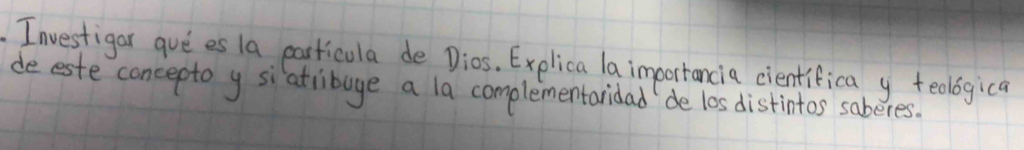 . Investigar qué es la partícula de Dios. Explica la importancia científica y teológica
de este concepto y si atribuye a la complementaridad de los distintos saberes.